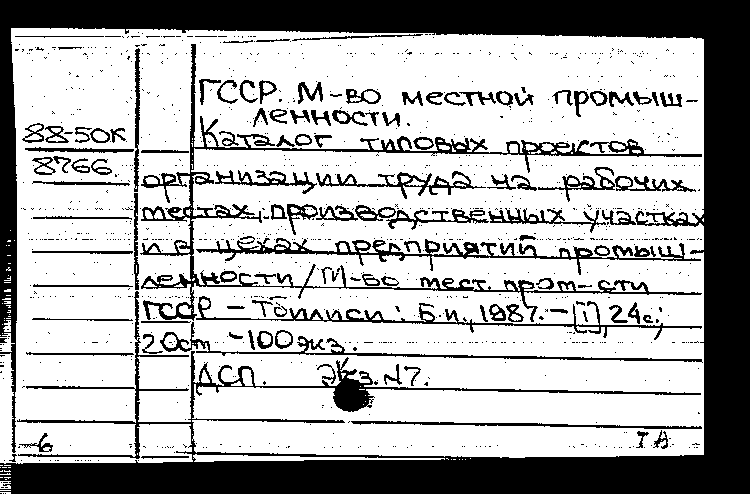 ГССР. М-во местной промыш-
ленности.
88-50К
Каталог типовых проектов
8766.
организации труда на рабочих
местах, производственных участках
и в цехах предприятий промыш-
ленности/М-во мест. пром-сти
ГССР – Тбилиси: Б.и., 1987. – [1], 24с.;
20см – 100экз.
ДСП. Экз. N7.
6
ТА